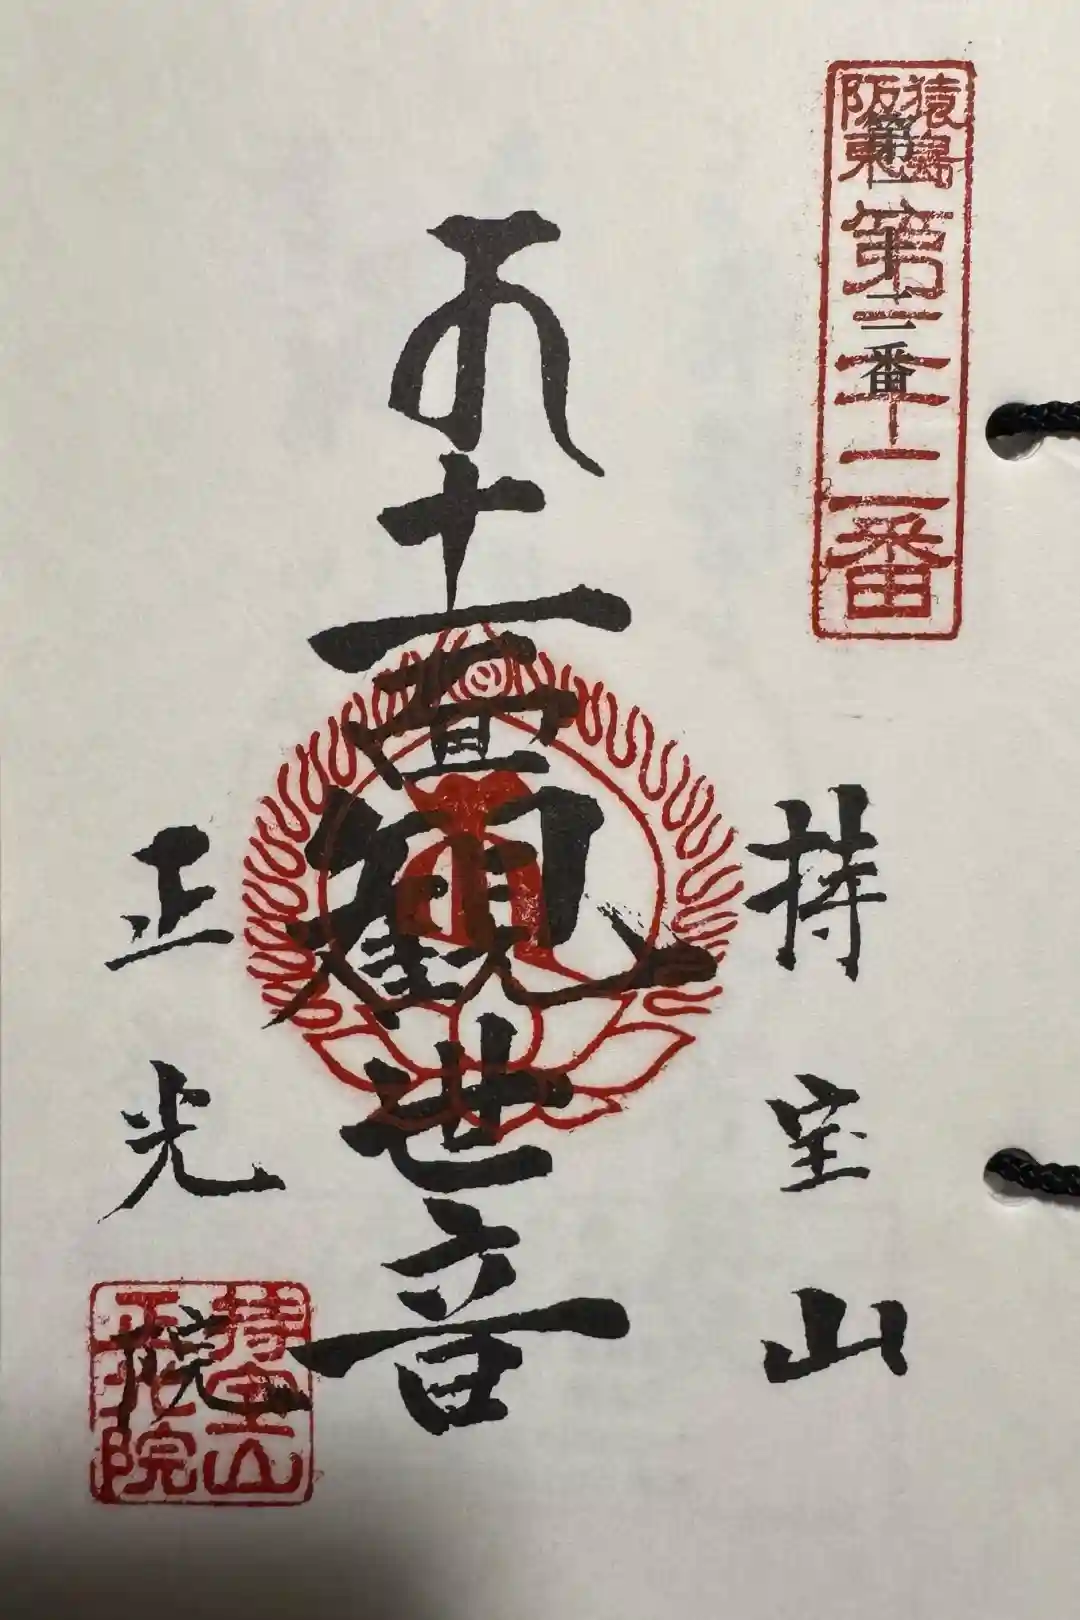 猿島
阪東
第三十二番
第三十二番
持宝山
十一面観世音
正光院
持宝山
正光院